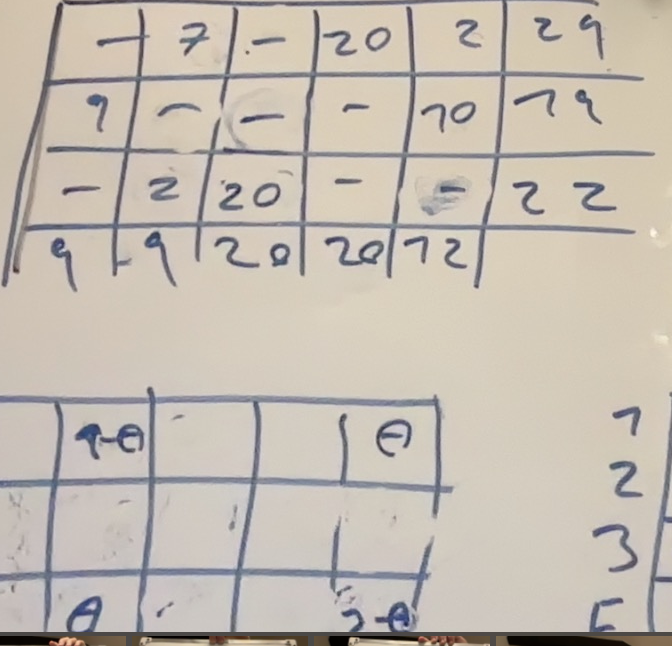 - 7 - 20 2 29
9 - - - 10 19
- 2 20 - - 22
9 9 20 20 12
9-θ - θ
θ - 2-θ
1
2
3
5